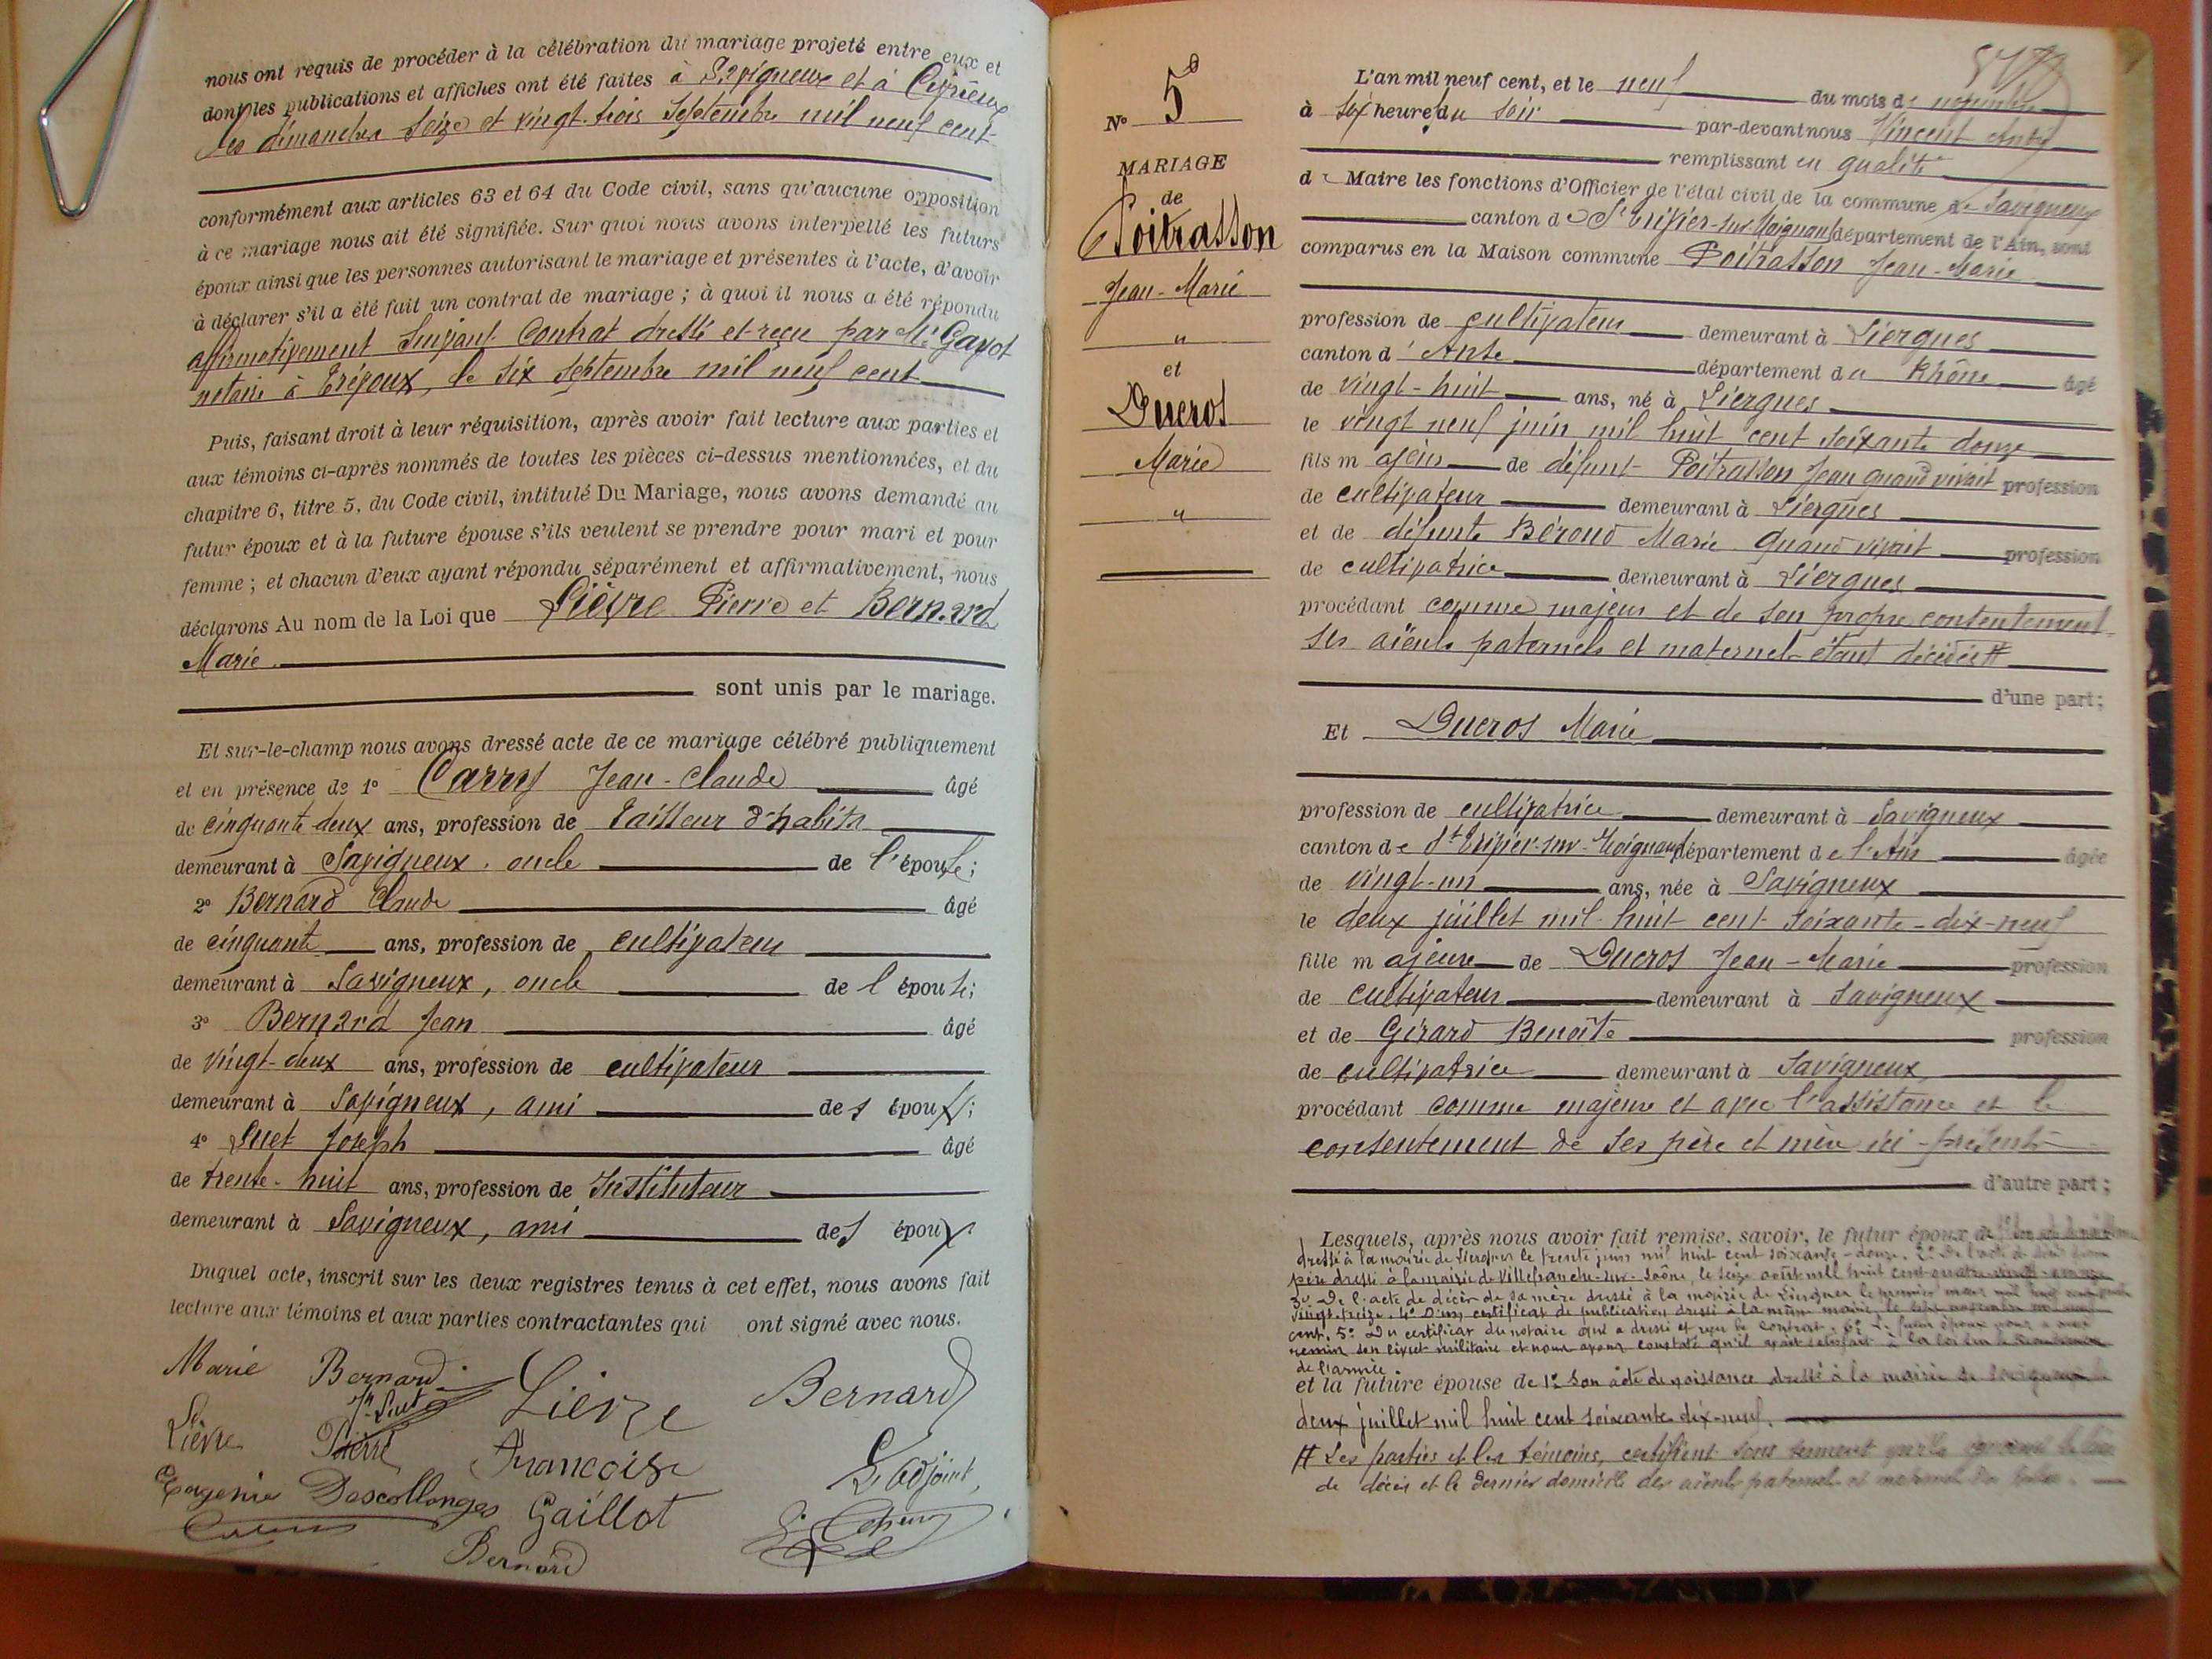 nous ont requis de procéder à la célébration du mariage projeté entre eux et
dont les publications et affiches ont été faites à Savigneux et à Civrieux
les dimanches seize et vingt-trois septembre mil neuf cent
conformément aux articles 63 et 64 du Code civil, sans qu'aucune opposition
à ce mariage nous ait été signifiée. Sur quoi nous avons interpellé les futurs
époux ainsi que les personnes autorisant le mariage et présentes à l'acte, d'avoir
à déclarer s'il a été fait un contrat de mariage ; à quoi il nous a été répondu
affirmativement suivant contrat dressé et reçu par Me Gayot
notaire à Trévoux, le six septembre mil neuf cent
Puis, faisant droit à leur réquisition, après avoir fait lecture aux parties et
aux témoins ci-après nommés de toutes les pièces ci-dessus mentionnées, et du
chapitre 6, titre 5, du Code civil, intitulé Du Mariage, nous avons demandé au
futur époux et à la future épouse s'ils veulent se prendre pour mari et pour
femme ; et chacun d'eux ayant répondu séparément et affirmativement, nous
déclarons Au nom de la Loi que Lièvre Pierre et Bernard
Marie
sont unis par le mariage.
Et sur-le-champ nous avons dressé acte de ce mariage célébré publiquement
et en présence de 1° Carry Jean-Claude âgé
de cinquante-deux ans, profession de Tailleur d'habits
demeurant à Savigneux, oncle de l'épouse ;
2° Bernard Claude âgé
de cinquante ans, profession de cultivateur
demeurant à Savigneux, oncle de l'épouse ;
3° Bernard Jean âgé
de vingt-deux ans, profession de cultivateur
demeurant à Savigneux, ami des époux ;
4° Suet Joseph âgé
de trente-huit ans, profession de Instituteur
demeurant à Savigneux, ami des époux.
Duquel acte, inscrit sur les deux registres tenus à cet effet, nous avons fait
lecture aux témoins et aux parties contractantes qui ont signé avec nous.
Marie Bernard Lièvre Bernard
Jh Suet
Lièvre Pierre Françoise L'adjoint,
Eugénie Descollonges Gaillot
Bernard
N° 5
MARIAGE
de
Poitrasson
Jean-Marie
"
et
Ducros
Marie
"
L'an mil neuf cent, et le neuf du mois de novembre
à six heures du soir par-devant nous Vincent
remplissant en qualité
de Maire les fonctions d'Officier de l'état civil de la commune de Savigneux
canton de St Trivier-sur-Moignans département de l'Ain, sont
comparus en la Maison commune Poitrasson Jean-Marie
profession de cultivateur demeurant à Liergues
canton d'Anse département du Rhône âgé
de vingt-huit ans, né à Liergues
le vingt neuf juin mil huit cent soixante douze
fils majeur de défunt Poitrasson Jean quand vivait profession
de cultivateur demeurant à Liergues
et de défunte Béroud Marie quand vivait profession
de cultivatrice demeurant à Liergues
procédant comme majeur et de son propre consentement
ses aïeuls paternels et maternels étant décédés #
d'une part ;
Et Ducros Marie
profession de cultivatrice demeurant à Savigneux
canton de St Trivier-sur-Moignans département de l'Ain âgée
de vingt-un ans, née à Savigneux
le deux juillet mil huit cent soixante-dix-neuf
fille majeure de Ducros Jean-Marie profession
de cultivateur demeurant à Savigneux
et de Girard Benoîte profession
de cultivatrice demeurant à Savigneux
procédant comme majeure et avec l'assistance et le
consentement de ses père et mère ici-présents
d'autre part ;
Lesquels, après nous avoir fait remise, savoir, le futur époux de 1° Son acte de naissance
dressé à la mairie de Liergues le trente juin mil huit cent soixante-douze. 2° De l'acte de décès de son
père dressé à la mairie de Villefranche-sur-Saône, le seize août mil huit cent quatre-vingt
3° De l'acte de décès de sa mère dressé à la mairie de Liergues le premier mars mil huit cent quatre
vingt-treize. 4° D'un certificat de publication dressé à la même mairie, le sept novembre mil neuf
cent. 5° Du certificat du notaire qui a dressé et reçu le contrat. 6° Le futur époux nous a aussi
remis son livret militaire et nous avons constaté qu'il avait satisfait à la loi sur le recrutement
de l'armée.
et la future épouse de 1° Son acte de naissance dressé à la mairie de Savigneux le
deux juillet mil huit cent soixante dix-neuf.
# Les parties et les témoins, certifient sous serment qu'ils ignorent le lieu
de décès et le dernier domicile des aïeuls paternels et maternels du futur.